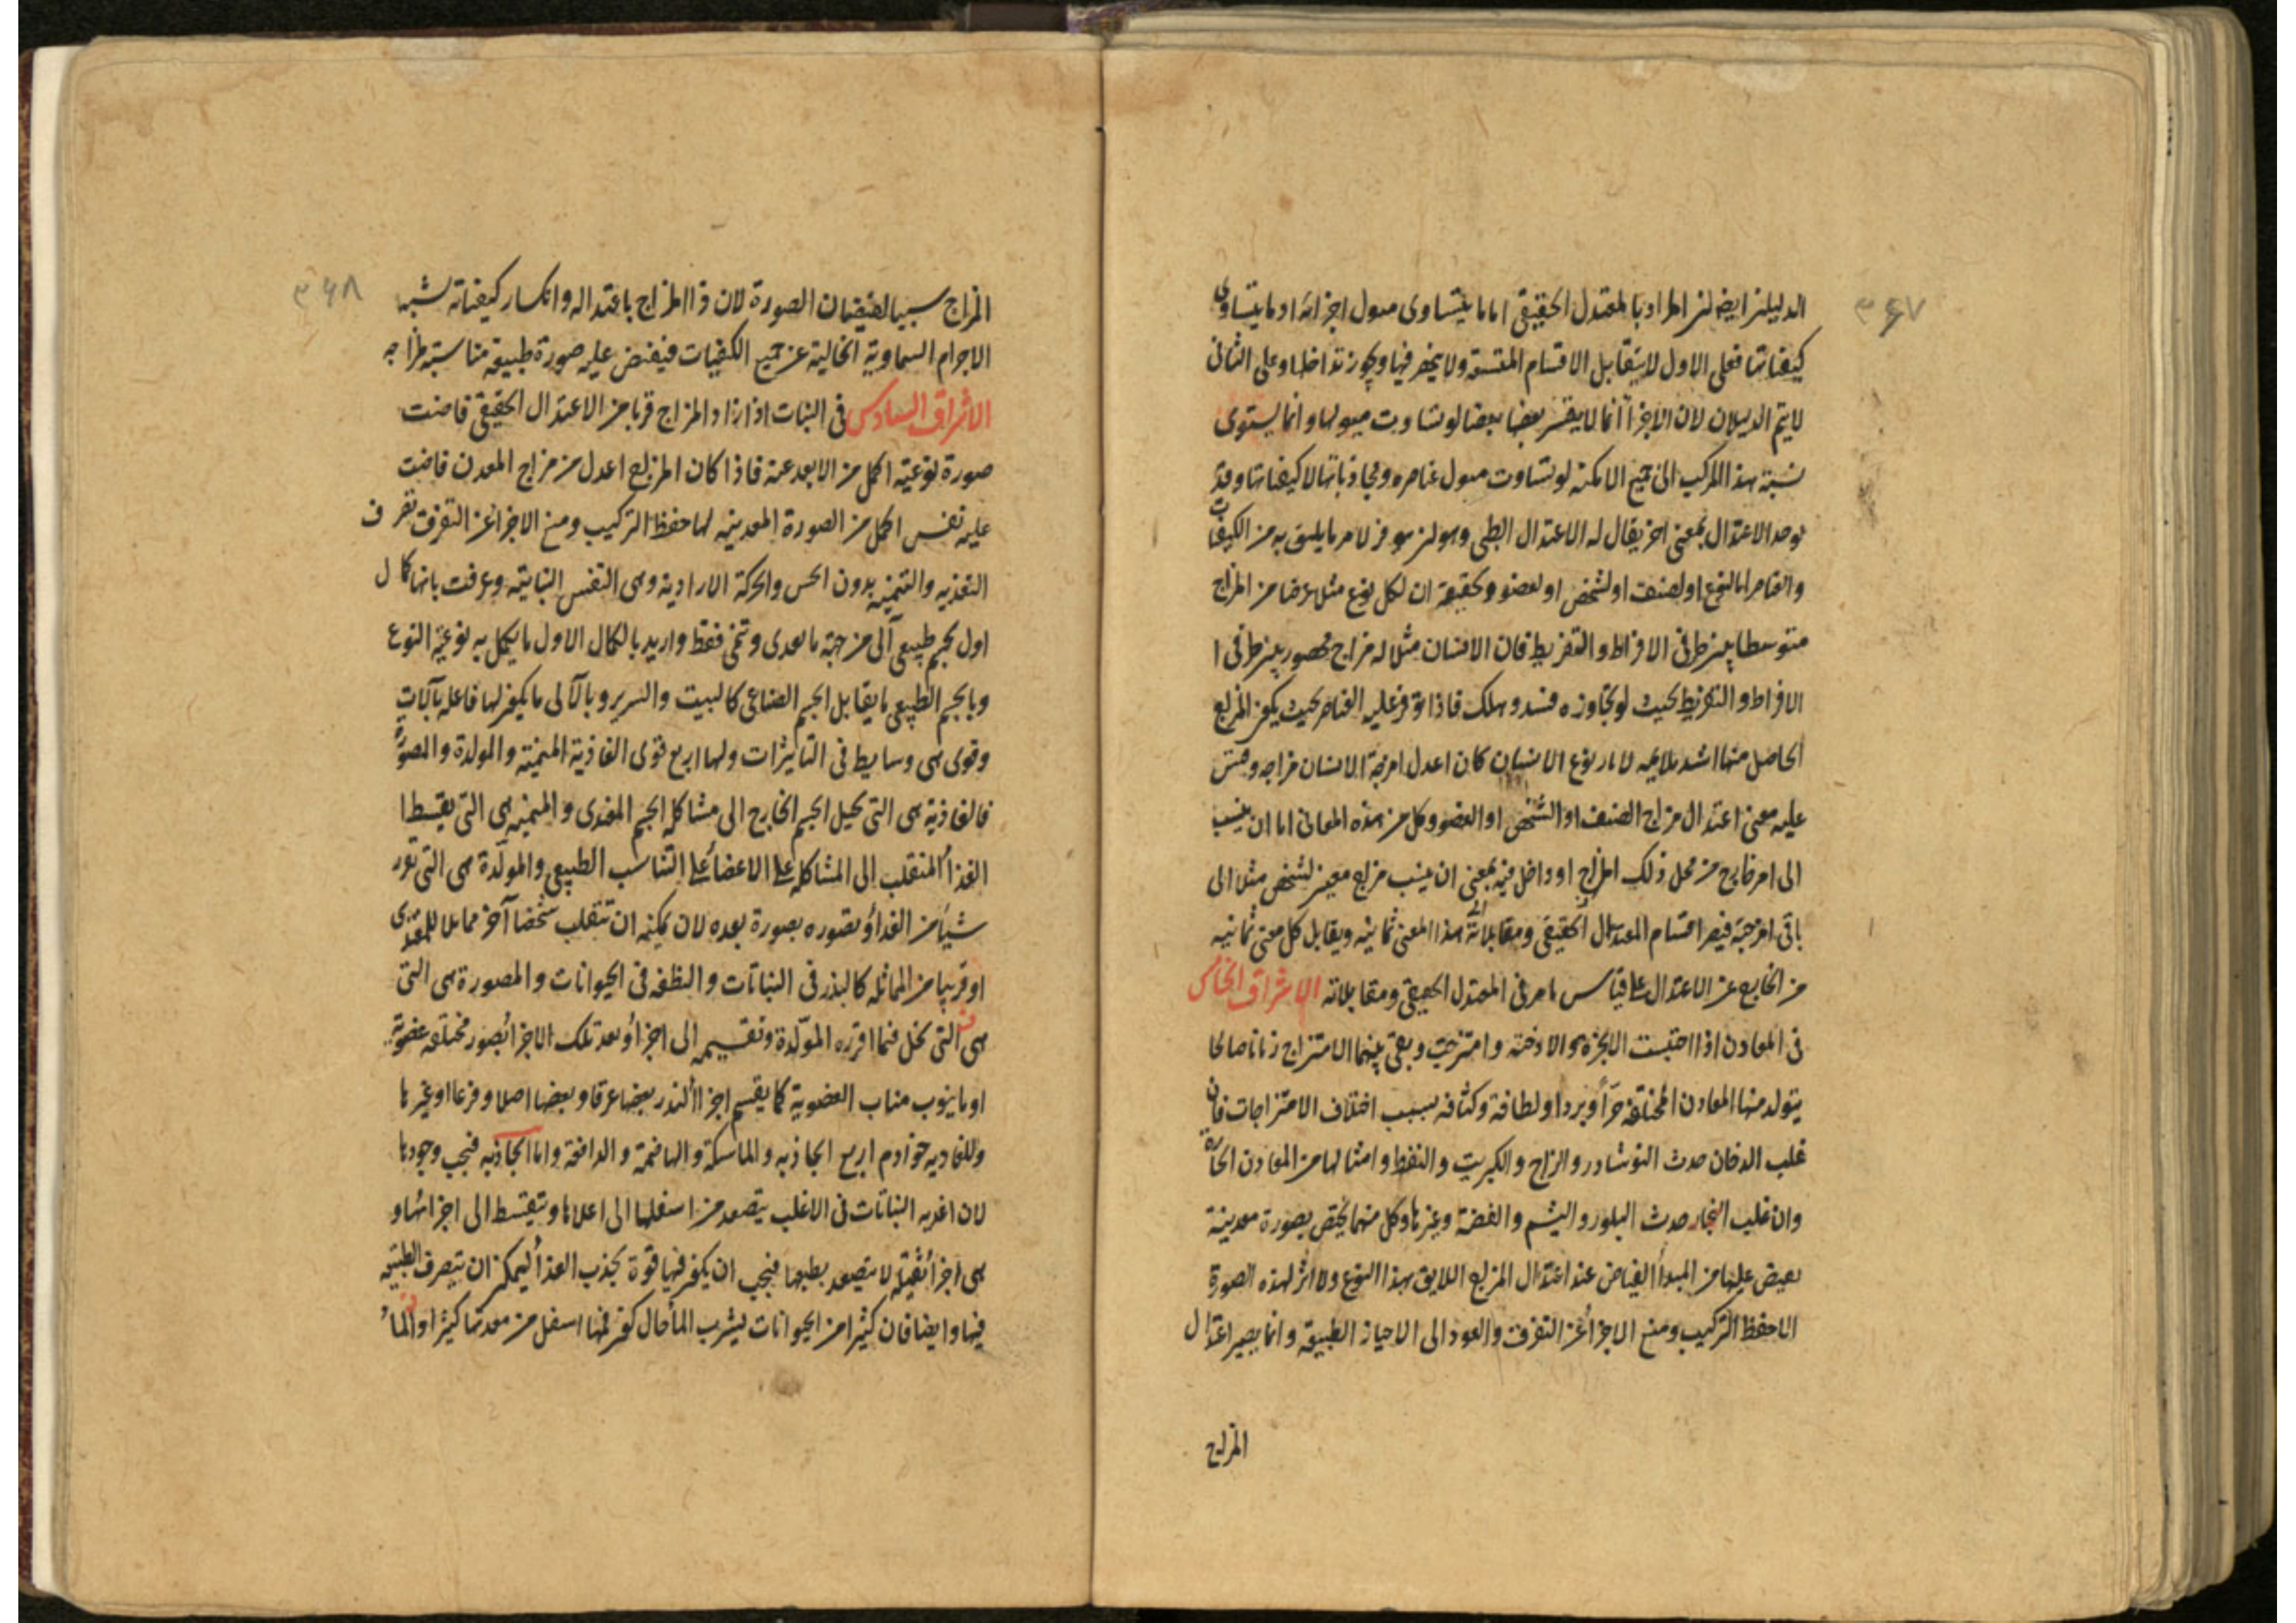 ۳۶۷
الدليلين ايضا لان المراد بالمعتدل الحقيقى اما ما يتساوى ميول اجزائه او ما يتساوى
كيفياتها فعلى الاول لا يتقابل الاقسام المقتسمة ولا ينحصر فيها ويجوز تداخلها وعلى الثانى
لا يتم الدليلان لان الاجزاء انما لا يقسر بعضها بعضا لو تساوت ميولها وانما يستوى
نسبة هذا المركب الى جميع الامكنة لو تساوت ميول عناصره ومجاذباتها لا كيفياتها وقد
يوجد الاعتدال بمعنى اخر يقال له الاعتدال الطبى وهو ان يتوفر لامر ما يليق به من الكيفيات
والعناصر اما لنوع او لصنف او لشخص او لعضو وتحقيقه ان لكل نوع مثلا عرضا من المزاج
متوسطا بين طرفى الافراط والتفريط فان الانسان مثلا له مزاج محصور بين طرفى ا
الافراط والتفريط بحيث لو تجاوزه فسد وهلك فاذا توفر عليه العناصر بحيث يكون المزاج
الحاصل منها اشد ملايمة لاثار نوع الانسان كان اعدل امزجة الانسان مزاجه وقس
عليه معنى اعتدال مزاج الصنف او الشخص او العضو وكل من هذه المعانى اما ان ينسب
الى امر خارج من محل ذلك المزاج او داخل فيه بمعنى ان ينسب مزاج معين لشخص مثلا الى
باقى امزجته فيصير اقسام المعتدل الحقيقى ومقابلاته بهذا المعنى ثمانية ويقابل كل معنى ثمانية
من الخارج عن الاعتدال على قياس ما مر فى المعتدل الحقيقى ومقابلاته الاشراق الخامس
فى المعادن اذا احتبست الابخرة والادخنة وامتزجت وبقى بينهما الامتزاج زمانا صالحا
يتولد منها المعادن المختلفة حرا وبردا ولطافة وكثافة بسبب اختلاف الامتزاجات فان
غلب الدخان حدث النوشادر والزاج والكبريت والنفط وامثالها من المعادن الحارة
وان غلب البخار حدث البلور واليشم والفضة وغيرها وكل منهما يختص بصورة معدنية
يفيض عليها من المبدأ الفياض عند اعتدال المزاج اللايق بهذا النوع ولا اثر لهذه الصورة
الا حفظ التركيب ومنع الاجزاء عن التفرق والعود الى الاحياز الطبيعة وانما يصير اعتدال
المزاج
۳۶۸
المزاج سببا لفيضان الصورة لان ذا المزاج باعتداله وانكسار كيفياته يشبه
الاجرام السماوية الخالية عن جميع الكيفيات فيفيض عليه صورة طبيعة مناسبة لمزاجه
الاشراق السادس فى النبات اذا ازداد المزاج قربا من الاعتدال الحقيقى فاضت
صورة نوعية اكمل من الابعد عنه فاذا كان المزاج اعدل من مزاج المعدن فاضت
عليه نفس اكمل من الصورة المعدنية لها حفظ التركيب ومنع الاجزاء عن التفرق تصرف
التغذيه والتنميه بدون الحس والحركة الارادية وهى النفس النباتية وعرفت بانها كمال
اول لجسم طبيعى آلى من جهة ما يغدى وتنمى فقط واريد بالكمال الاول ما يكمل به نوعية النوع
وبالجسم الطبيعى ما يقابل الجسم الصناعى كالبيت والسرير وبالآلى ما يكون لها فاعله بآلات
وقوى هى وسايط فى التاثيرات ولها اربع قوى الغاذية المنمية والمولدة والمصورة
فالغاذية هى التى تحيل الجسم الخارج الى مشاكلة الجسم المغذى والمنميه هى التى يقسط ا
الغذاء المنقلب الى المشاكله على الاعضاء على التناسب الطبيعى والمولدة هى التى تفرز
شيئا من الغذاء وتصوره بصورة بعده لان يمكنه ان تنقلب شخصا آخر مماثلا للمغتذى
او قريبا من المماثله كالبذر فى النباتات والنطفه فى الحيوانات والمصورة هى التى
هى التى تحل فيما افرزه المولدة وتقسيمه الى اجزاء وبعد تلك الاجزاء بصور مختلفه عضوية
او ما ينوب مناب العضوية كما يقسم اجزاء البذر بعضها عرقا وبعضها اصلا وفرعا او غيرها
وللغاديه خوادم اربع الجاذبه والماسكة والهاضمة والدافعة واما الجاذبه فيجب وجودها
لان اغديه النباتات فى الاغلب يتصعد من اسفلها الى اعلاها ويتقسط الى اجزائها و
هى اجزاء ثقيلة لا يتصعد بطبعها فيجب ان يكون فيها قوة يجذب الغذاء ليمكن ان يتصرف الطبيعه
فيها وايضا فان كثيرا من الحيوانات يشرب الماء حال كون فمها اسفل من معدتها كثيرا والماء